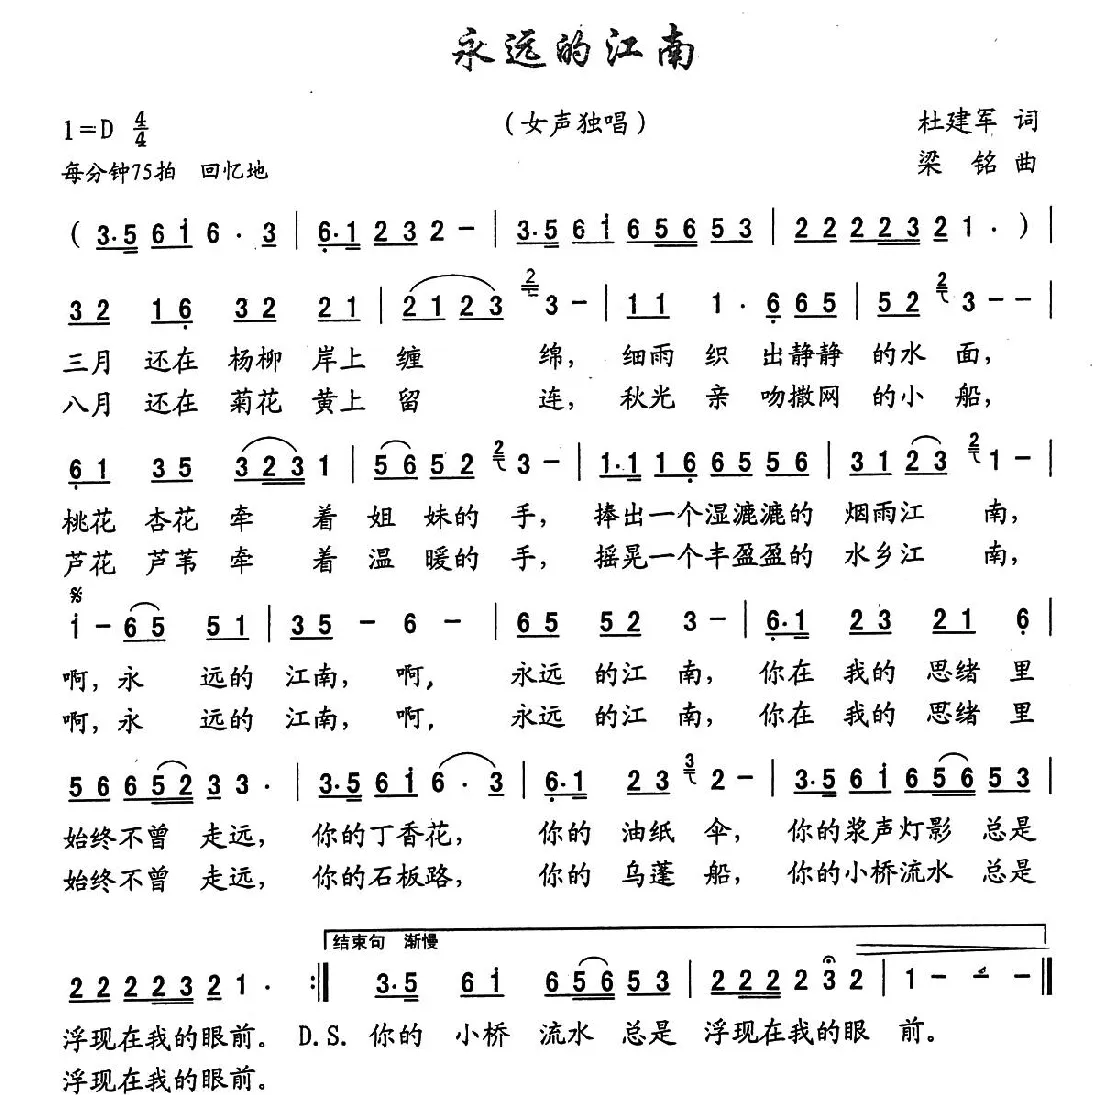 永远的江南
1=D 4/4
（女声独唱）
杜建军 词
每分钟75拍 回忆地
梁 铭 曲
( 3·5 6 i 6 · 3 | 6·1 2 3 2 － | 3·5 6 i 6 5 6 5 3 | 2 2 2 2 3 2 1 · ) |
3 2 1 6 3 2 2 1 | 2 1 2 3 2 3 － | 1 1 1 · 6 6 5 | 5 2 2 3 － － |
三月 还在 杨柳 岸上 缠 绵， 细雨 织 出静静 的水 面，
八月 还在 菊花 黄上 留 连， 秋光 亲 吻撒网 的小 船，
6 1 3 5 3 2 3 1 | 5 6 5 2 2 3 － | 1·1 1 6 6 5 5 6 | 3 1 2 3 2 1 － |
桃花 杏花 牵 着 姐 妹的 手， 捧出一个湿漉漉的 烟雨江 南，
芦花 芦苇 牵 着 温 暖的 手， 摇晃一个丰盈盈的 水乡江 南，
𝄋
i － 6 5 5 1 | 3 5 － 6 － | 6 5 5 2 3 － | 6·1 2 3 2 1 6 |
啊，永 远的 江南， 啊， 永远 的江 南， 你在 我的 思绪 里
啊，永 远的 江南， 啊， 永远 的江 南， 你在 我的 思绪 里
5 6 6 5 2 3 3 · | 3·5 6 i 6 · 3 | 6·1 2 3 3 2 － | 3·5 6 i 6 5 6 5 3 |
始终不曾 走远， 你的丁香花， 你的 油纸 伞， 你的桨声灯影 总是
始终不曾 走远， 你的石板路， 你的 乌蓬 船， 你的小桥流水 总是
结束句 渐慢
2 2 2 2 3 2 1 · :‖ 3·5 6 i 6 5 6 5 3 | 2 2 2 2 3 2 | 1 － － － ‖
浮现在我的眼前。 D.S. 你的 小桥 流水 总是 浮现在我的眼 前。
浮现在我的眼前。